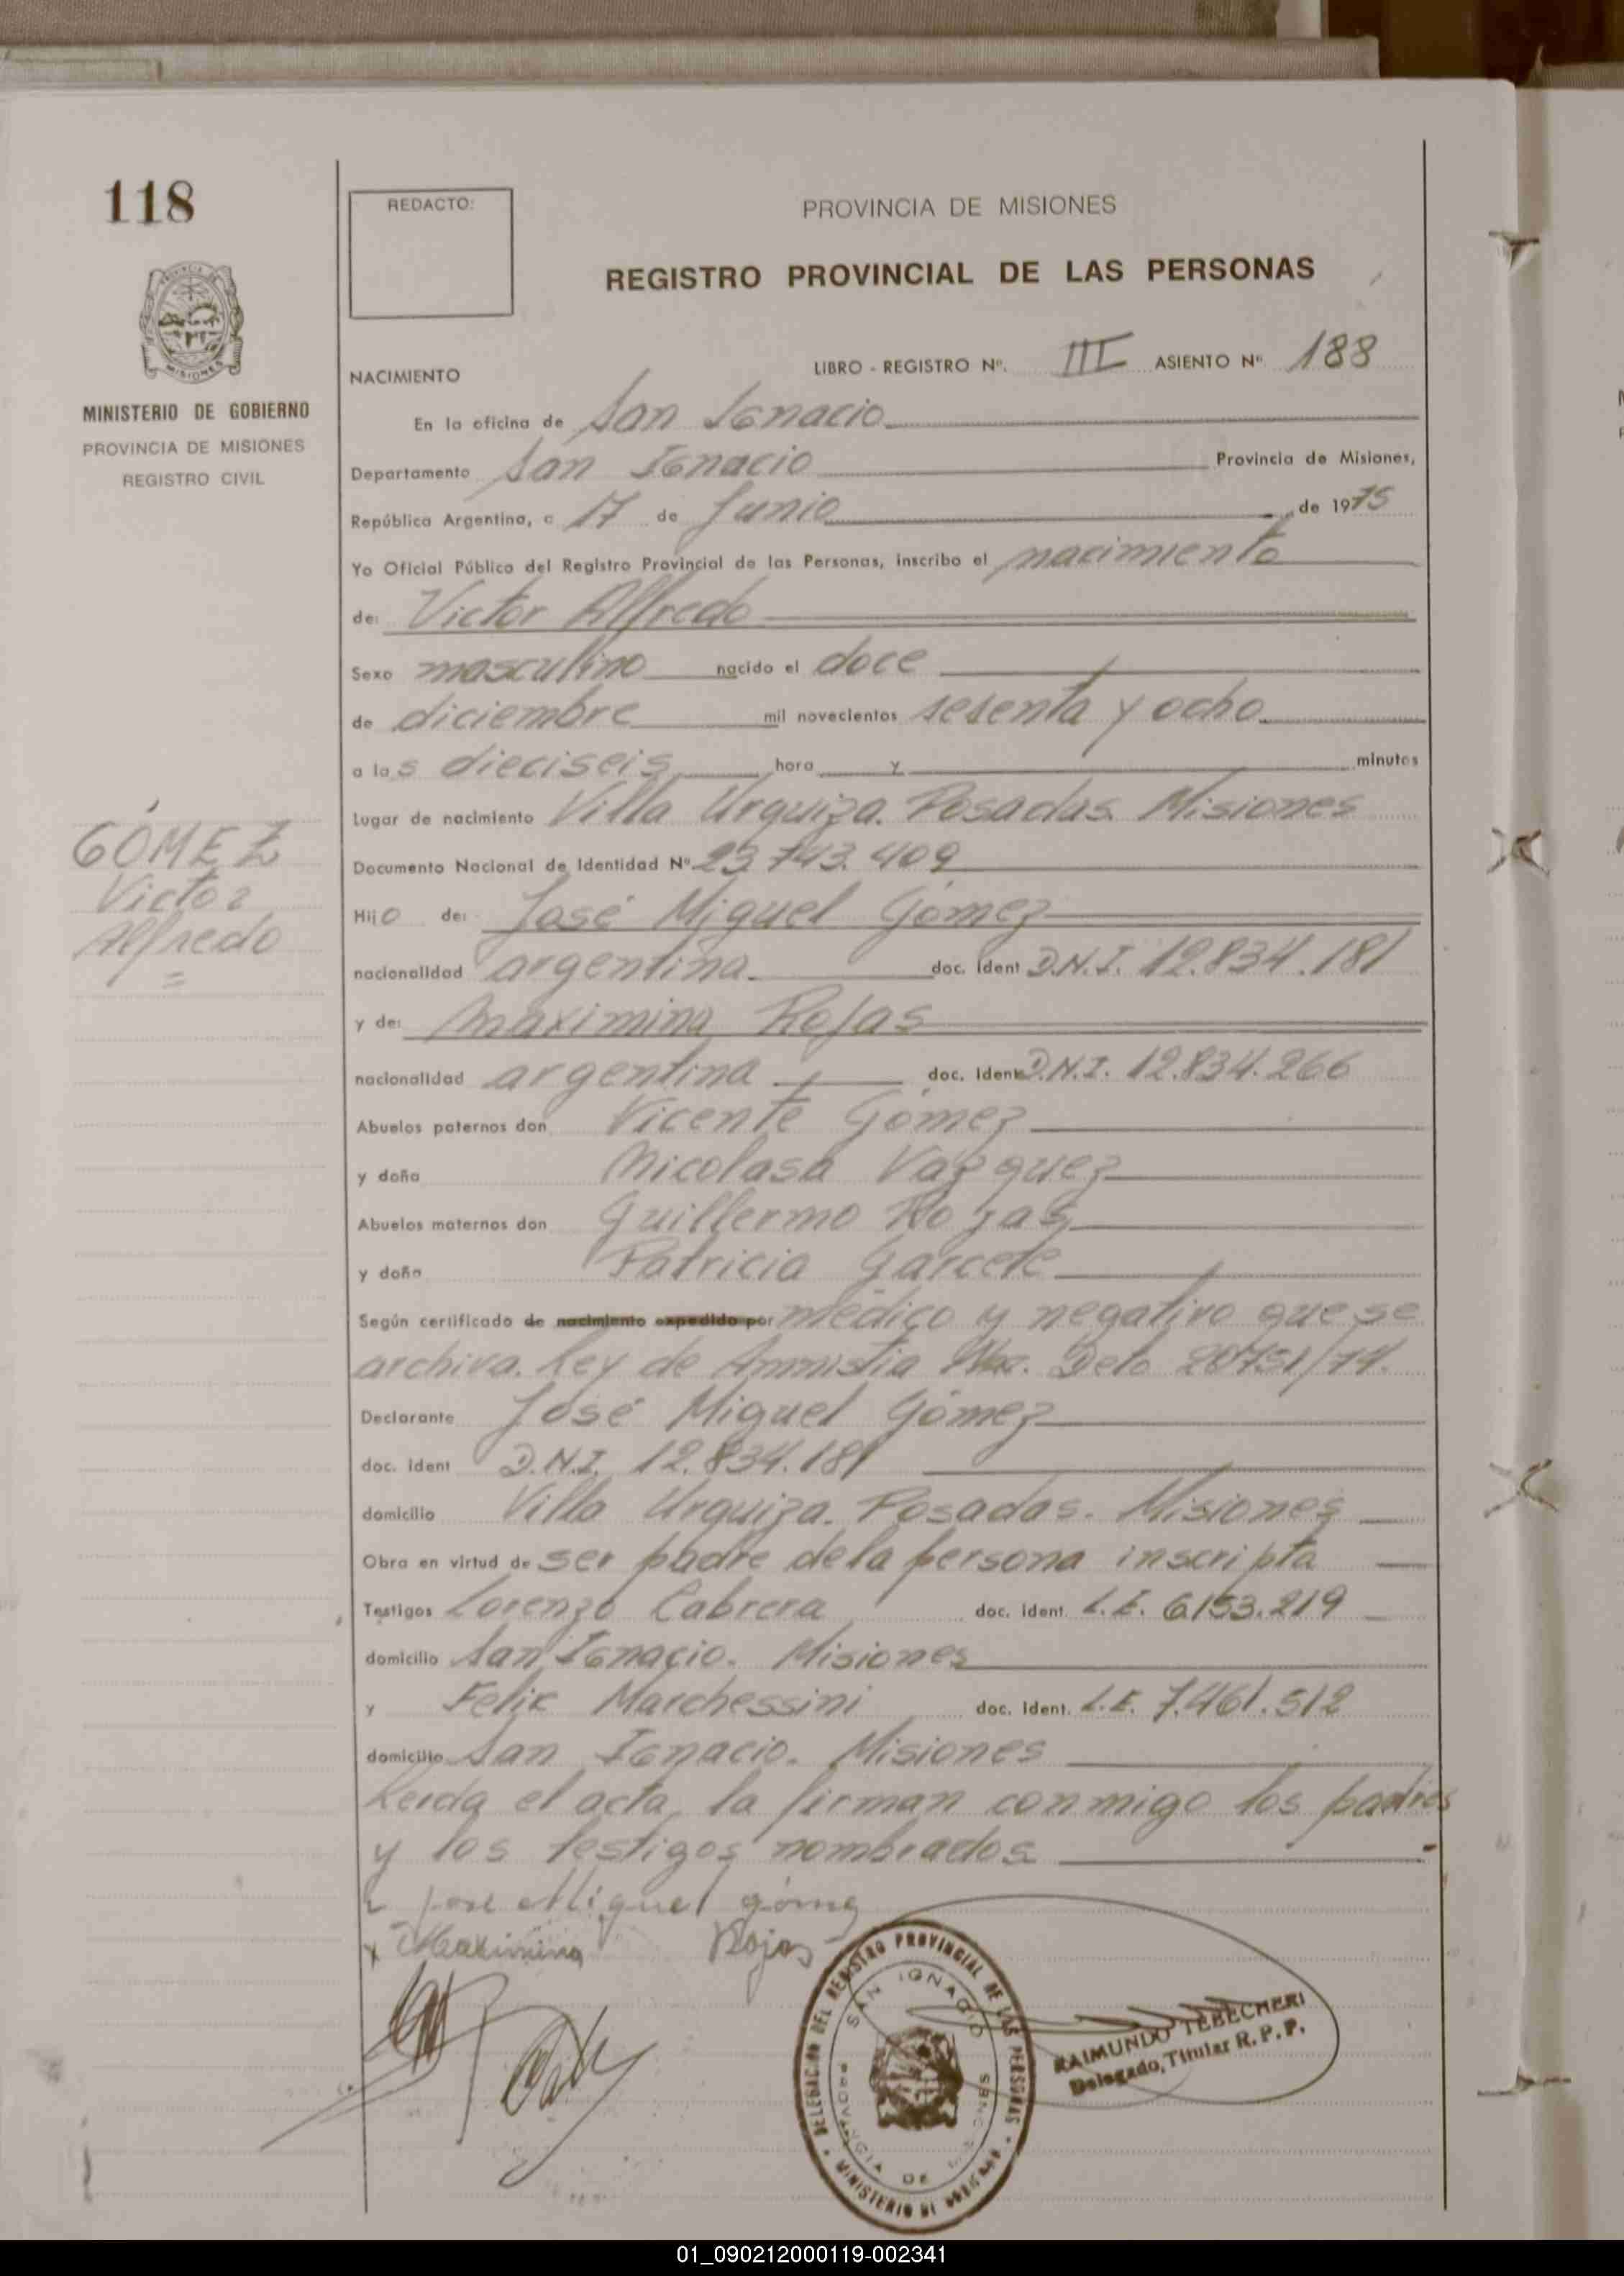 118
REDACTO:
PROVINCIA DE MISIONES
REGISTRO PROVINCIAL DE LAS PERSONAS
MISIONES
MINISTERIO DE GOBIERNO
PROVINCIA DE MISIONES
REGISTRO CIVIL
NACIMIENTO LIBRO - REGISTRO Nº. III ASIENTO Nº 188
En la oficina de San Ignacio
Departamento San Ignacio Provincia de Misiones,
República Argentina, a 17 de Junio de 1975
Yo Oficial Público del Registro Provincial de las Personas, inscribo el nacimiento
de: Victor Alfredo
Sexo masculino nacido el doce
de diciembre mil novecientos sesenta y ocho
a las dieciseis hora y minutos
Lugar de nacimiento Villa Urquiza. Posadas. Misiones
GÓMEZ
Victor
Alfredo
Documento Nacional de Identidad Nº 23.743.409
Hijo de: José Miguel Gómez
nacionalidad argentina doc. ident D.N.I. 12.834.181
y de: Maximina Rojas
nacionalidad argentina doc. ident D.N.I. 12.834.266
Abuelos paternos don Vicente Gómez
y doña Nicolasa Vazquez
Abuelos maternos don Guillermo Rojas
y doña Patricia Garcete
Según certificado de nacimiento expedido por médico y negativo que se
archiva. Ley de Amnistia Nac. Deto 20751/74.
Declarante José Miguel Gómez
doc. ident D.N.I. 12.834.181
domicilio Villa Urquiza. Posadas. Misiones
Obra en virtud de ser padre de la persona inscripta
Testigos Lorenzo Cabrera doc. ident. L.E. 6.153.219
domicilio San Ignacio. Misiones
y Felix Marchessini doc. ident. L.E. 7.461.512
domicilio San Ignacio. Misiones
Leida el acta, la firman conmigo los padres
y los testigos nombrados
Jose Miguel gómez
x Maximina Rojas
DELEGACION DEL REGISTRO PROVINCIAL DE LAS PERSONAS
SAN IGNACIO
PROVINCIA DE MISIONES
MINISTERIO DE GOBIERNO
RAIMUNDO TEBECHERI
Delegado, Titular R. P. P.
01_090212000119-002341